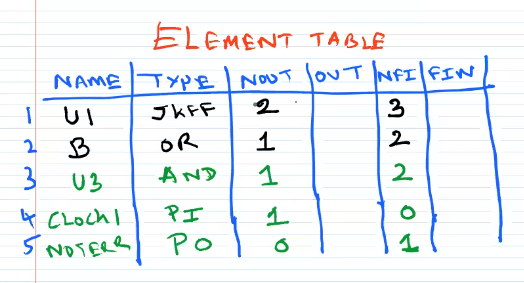 ELEMENT TABLE
NAME TYPE NOUT OUT NFI FIN
1 U1 JKFF 2 3
2 B OR 1 2
3 U3 AND 1 2
4 CLOCK1 PI 1 0
5 NOTERR PO 0 1